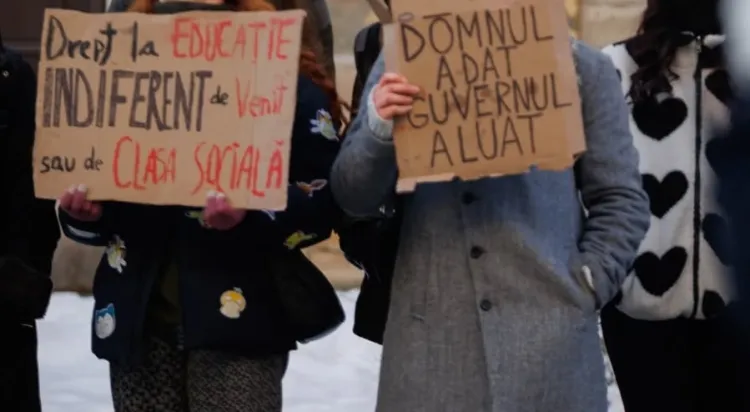 Drept la EDUCAȚIE
INDIFERENT de Venit
sau de CLASA SOCIALĂ
DOMNUL
A DAT
GUVERNUL
A LUAT